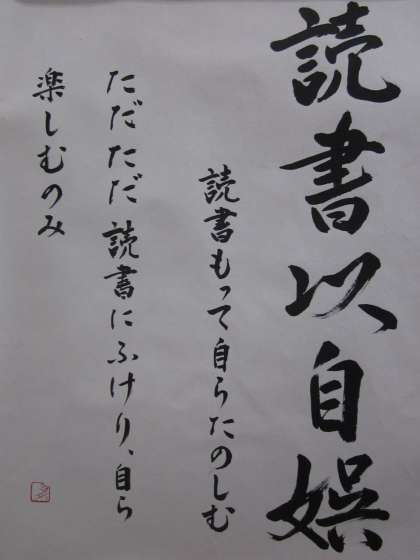 読書以自娯
読書もって自らたのしむ
ただただ読書にふけり、自ら
楽しむのみ